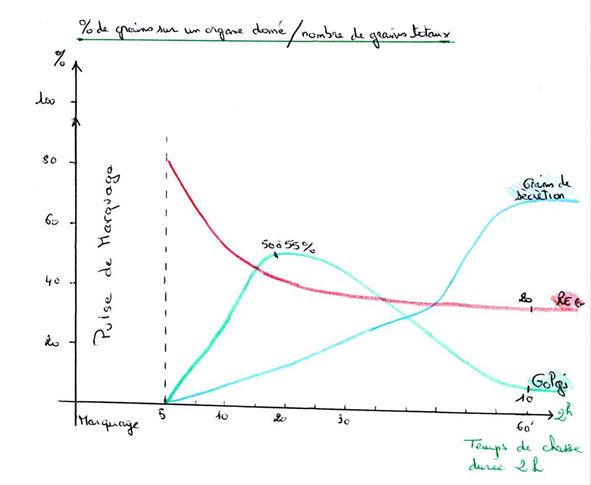 % de grains sur un organe donné / nombre de grains totaux
%
100
80
60
40
20
Pulse de Marquage
50 à 55%
Grains de
sécrétion
20
RE
Golgi
10
Marquage
5
10
20
30
60'
2h
Temps de chasse
durée 2h